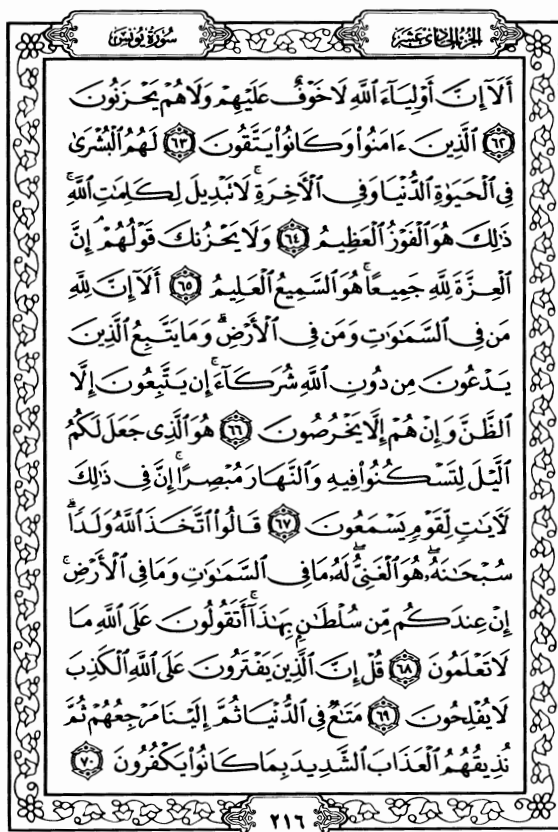 سُورَةُ يُونُسَ
الجُزْءُ الحَادِي عَشَرَ
أَلَآ إِنَّ أَوْلِيَآءَ ٱللَّهِ لَا خَوْفٌ عَلَيْهِمْ وَلَا هُمْ يَحْزَنُونَ
٦٢ ٱلَّذِينَ ءَامَنُوا۟ وَكَانُوا۟ يَتَّقُونَ ٦٣ لَهُمُ ٱلْبُشْرَىٰ
فِى ٱلْحَيَوٰةِ ٱلدُّنْيَا وَفِى ٱلْأَخِرَةِ ۚ لَا تَبْدِيلَ لِكَلِمَٰتِ ٱللَّهِ ۚ
ذَٰلِكَ هُوَ ٱلْفَوْزُ ٱلْعَظِيمُ ٦٤ وَلَا يَحْزُنكَ قَوْلُهُمْ ۘ إِنَّ
ٱلْعِزَّةَ لِلَّهِ جَمِيعًا ۚ هُوَ ٱلسَّمِيعُ ٱلْعَلِيمُ ٦٥ أَلَآ إِنَّ لِلَّهِ
مَن فِى ٱلسَّمَٰوَٰتِ وَمَن فِى ٱلْأَرْضِ ۗ وَمَا يَتَّبِعُ ٱلَّذِينَ
يَدْعُونَ مِن دُونِ ٱللَّهِ شُرَكَآءَ ۚ إِن يَتَّبِعُونَ إِلَّا
ٱلظَّنَّ وَإِنْ هُمْ إِلَّا يَخْرُصُونَ ٦٦ هُوَ ٱلَّذِى جَعَلَ لَكُمُ
ٱلَّيْلَ لِتَسْكُنُوا۟ فِيهِ وَٱلنَّهَارَ مُبْصِرًا ۚ إِنَّ فِى ذَٰلِكَ
لَأَيَٰتٍ لِّقَوْمٍ يَسْمَعُونَ ٦٧ قَالُوا۟ ٱتَّخَذَ ٱللَّهُ وَلَدًا ۗ
سُبْحَٰنَهُۥ ۖ هُوَ ٱلْغَنِىُّ ۖ لَهُۥ مَا فِى ٱلسَّمَٰوَٰتِ وَمَا فِى ٱلْأَرْضِ ۚ
إِنْ عِندَكُم مِّن سُلْطَٰنٍۭ بِهَٰذَآ ۚ أَتَقُولُونَ عَلَى ٱللَّهِ مَا
لَا تَعْلَمُونَ ٦٨ قُلْ إِنَّ ٱلَّذِينَ يَفْتَرُونَ عَلَى ٱللَّهِ ٱلْكَذِبَ
لَا يُفْلِحُونَ ٦٩ مَتَٰعٌ فِى ٱلدُّنْيَا ثُمَّ إِلَيْنَا مَرْجِعُهُمْ ثُمَّ
نُذِيقُهُمُ ٱلْعَذَابَ ٱلشَّدِيدَ بِمَا كَانُوا۟ يَكْفُرُونَ ٧٠
٢١٦